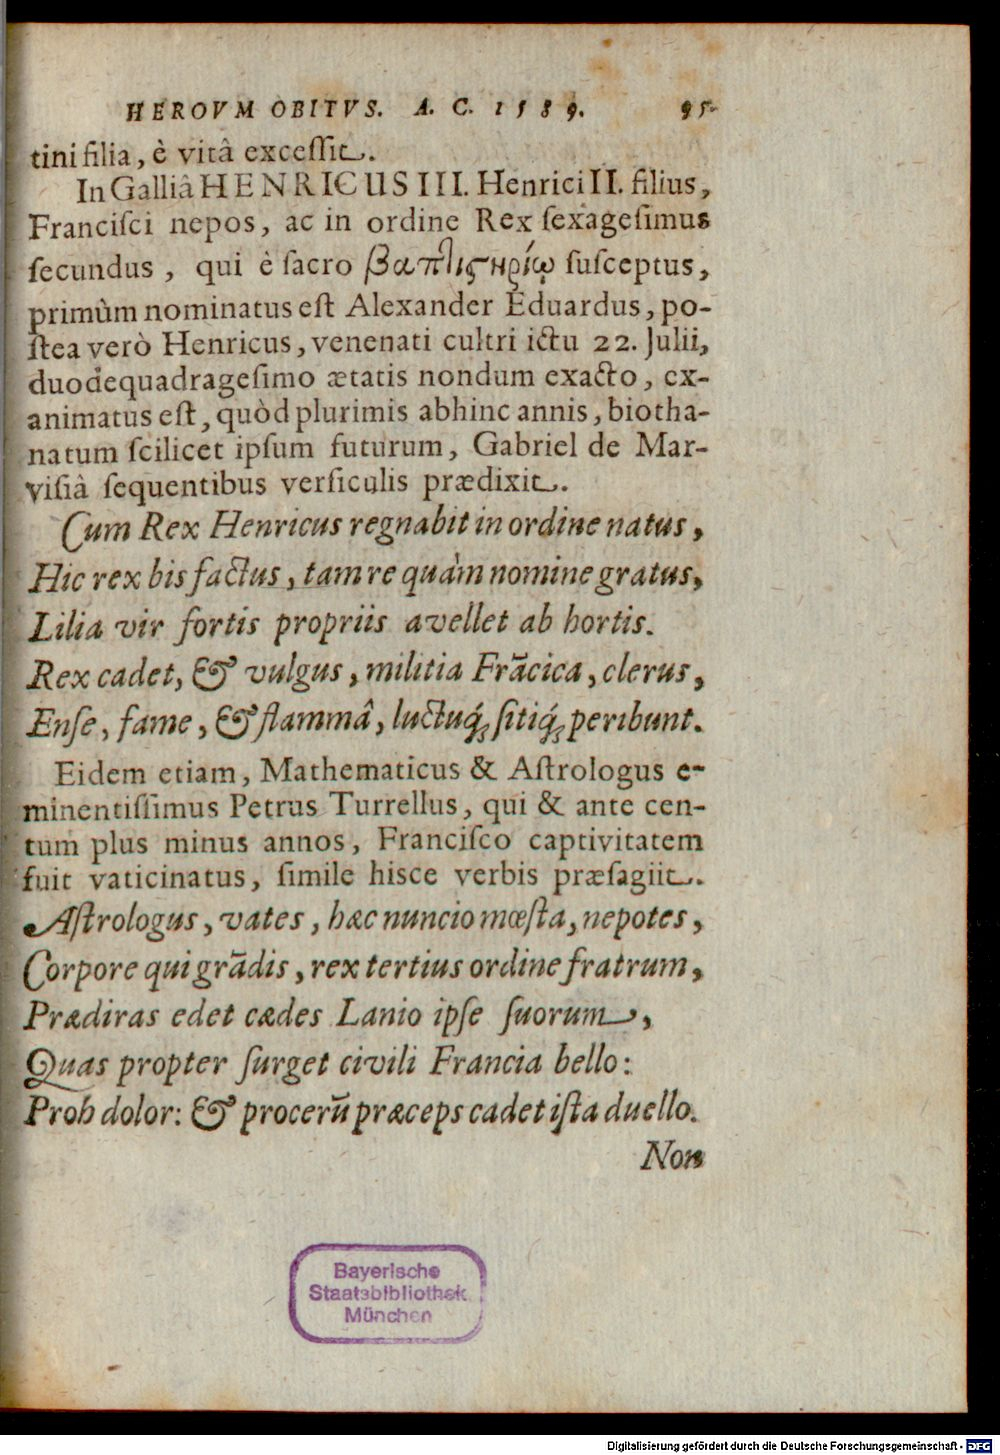 HEROVM OBITVS. A. C. 1589. 95
tini filia, è vitâ exceſſit.
In Galliâ HENRICUS III. Henrici II. filius,
Franciſci nepos, ac in ordine Rex ſexageſimus
ſecundus, qui è ſacro βαπτιστηρίῳ ſuſceptus,
primùm nominatus eſt Alexander Eduardus, po-
ſtea verò Henricus, venenati cultri ictu 22. Julii,
duodequadrageſimo ætatis nondum exacto, ex-
animatus eſt, quòd plurimis abhinc annis, biotha-
natum ſcilicet ipſum futurum, Gabriel de Mar-
viſiâ ſequentibus verſiculis prædixit.
Cum Rex Henricus regnabit in ordine natus,
Hic rex bis factus, tam re quàm nomine gratus,
Lilia vir fortis propriis avellet ab hortis.
Rex cadet, & vulgus, militia Frācica, clerus,
Enſe, fame, & flammâ, luctuq́; ſitiq́; peribunt.
Eidem etiam, Mathematicus & Aſtrologus e-
minentiſſimus Petrus Turrellus, qui & ante cen-
tum plus minus annos, Franciſco captivitatem
fuit vaticinatus, ſimile hisce verbis præſagiit.
Aſtrologus, vates, hæc nuncio mœſta, nepotes,
Corpore qui grādis, rex tertius ordine fratrum,
Prædiras edet cædes Lanio ipſe ſuorum,
Quas propter ſurget civili Francia bello:
Proh dolor: & procerū præceps cadet iſta duello.
Non
Bayerische
Staatsbibliothek
München
Digitalisierung gefördert durch die Deutsche Forschungsgemeinschaft - DFG